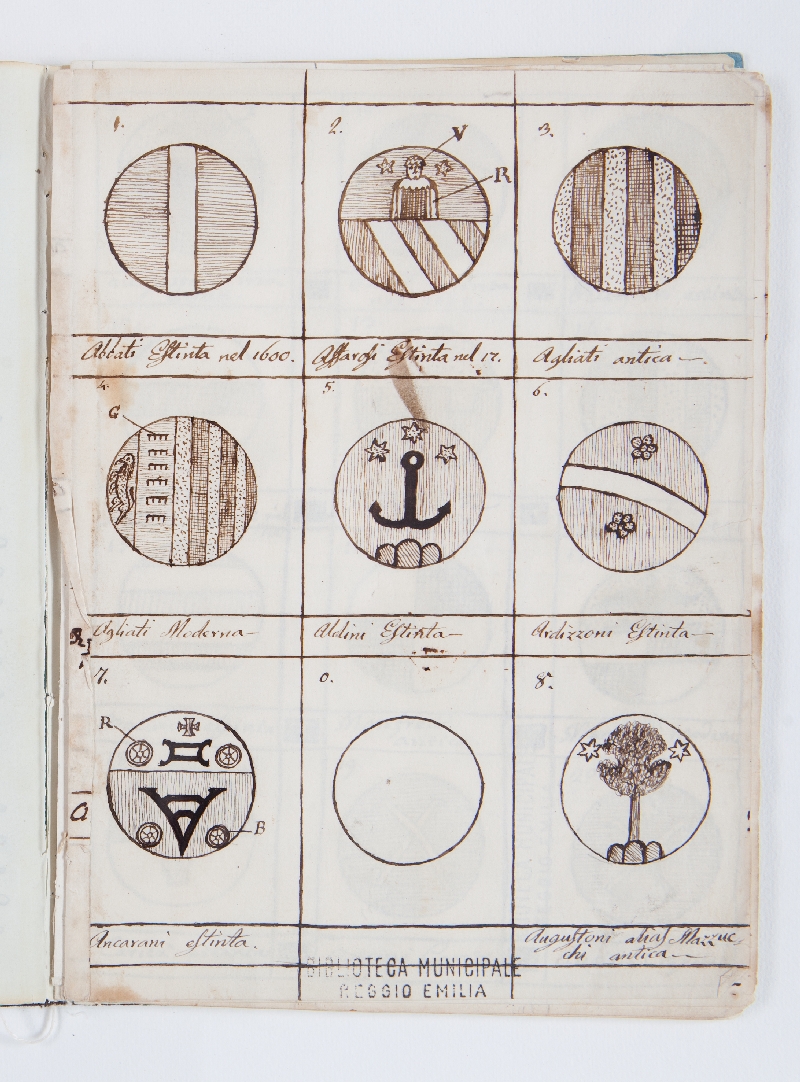 1.
2.
3.
V
R
Abbati Estinta nel 1600.
Affarosi Estinta nel 17.
Agliati antica
4.
5.
6.
G
Agliati Moderna
Aldini Estinta
Ardizzoni Estinta
7.
0.
8.
R
B
a
Ancarani estinta.
Augustoni alias Marruc
chi antica
BIBLIOTECA MUNICIPALE
REGGIO EMILIA